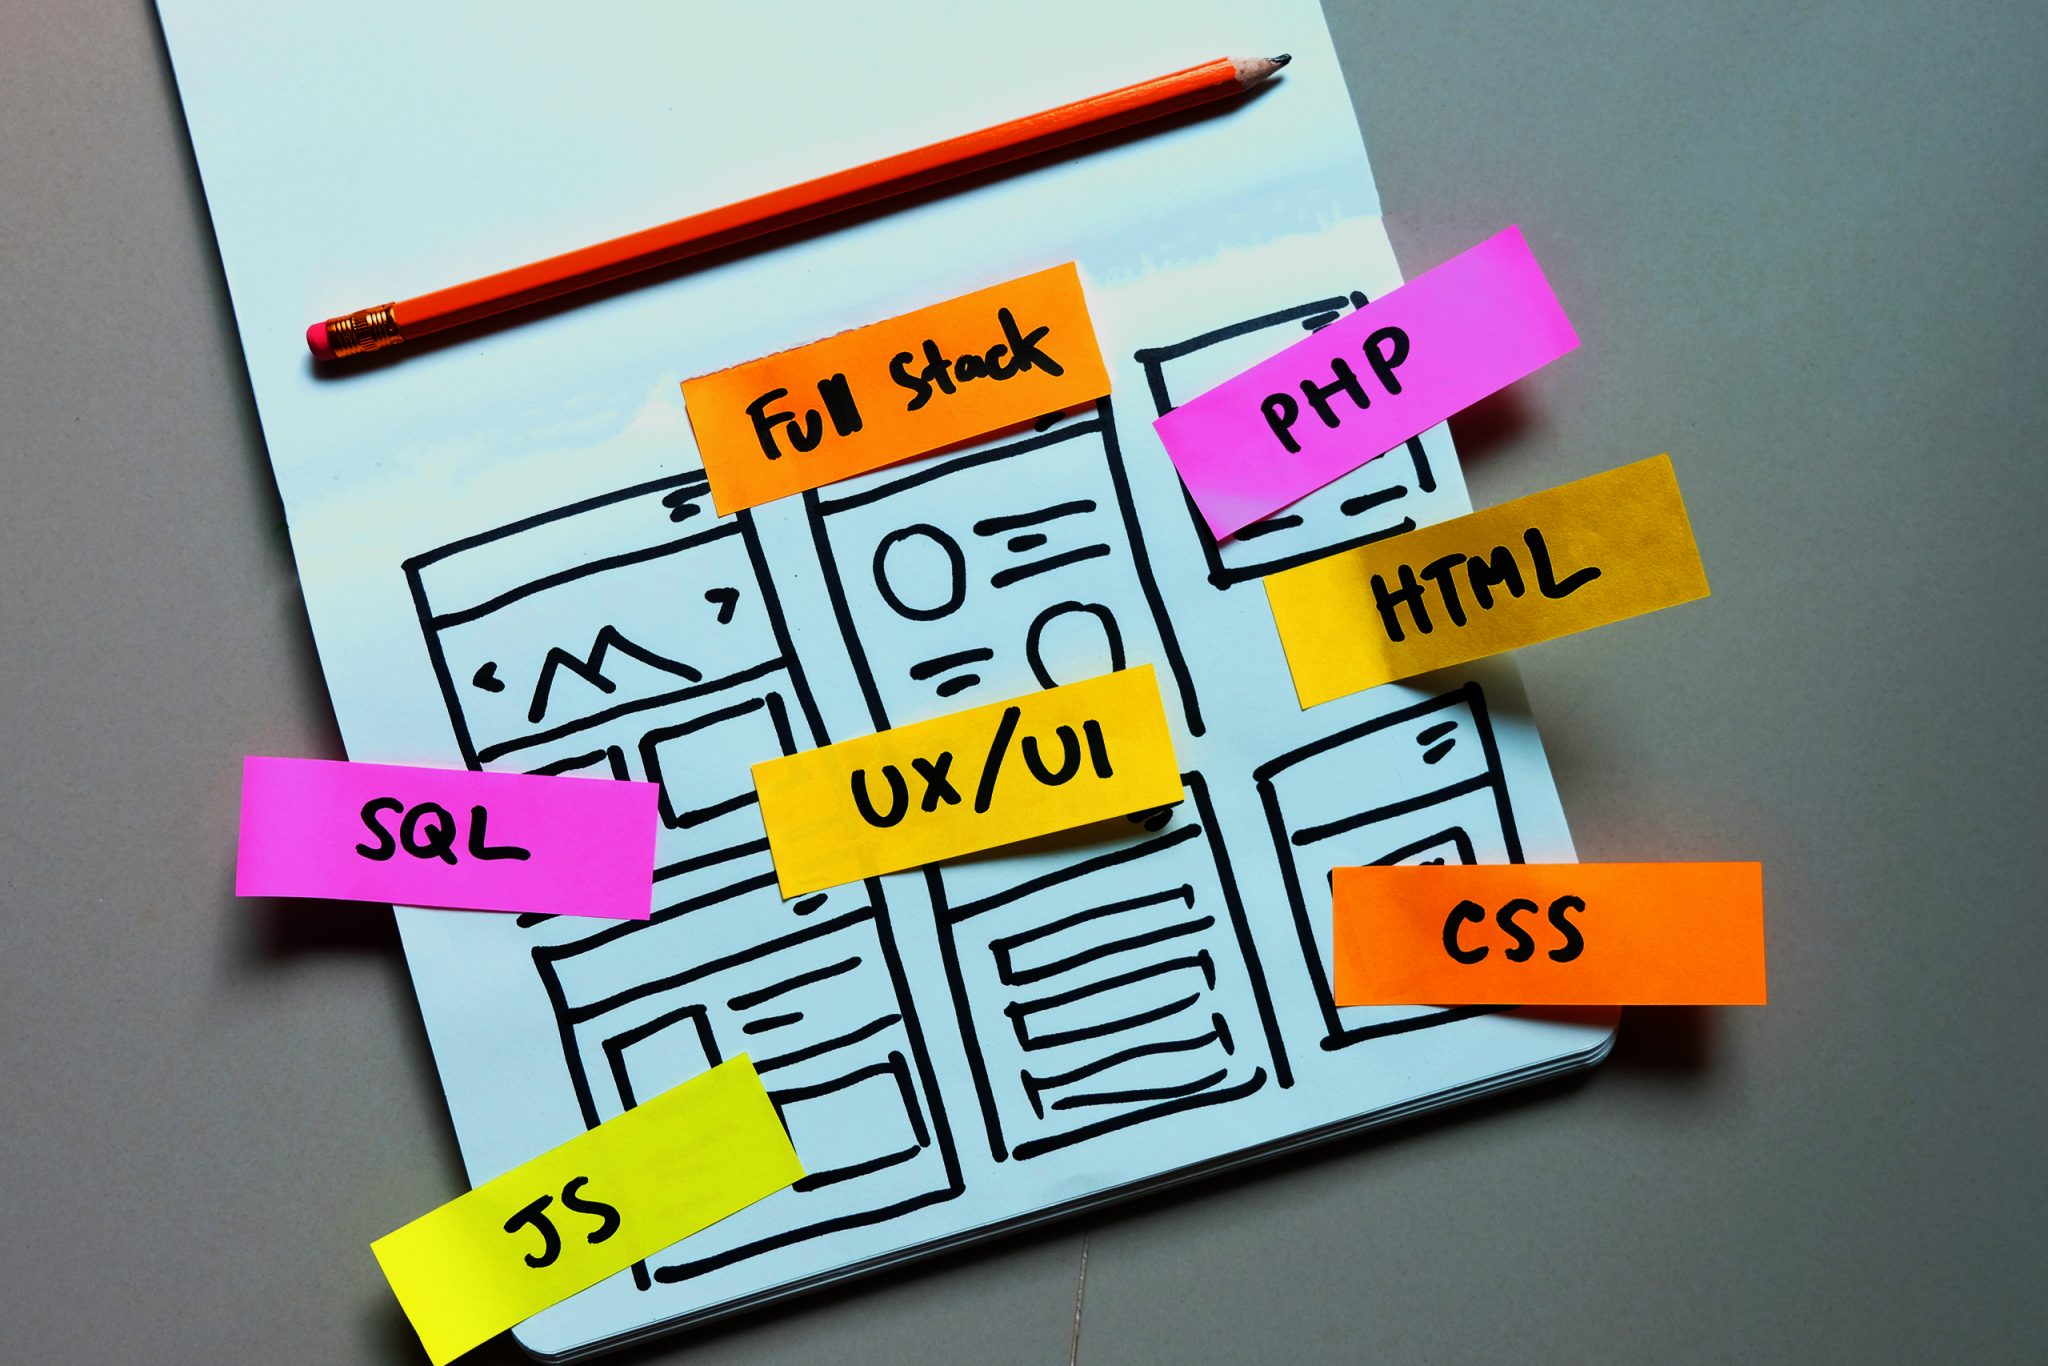 Full Stack
PHP
HTML
UX/UI
SQL
CSS
JS